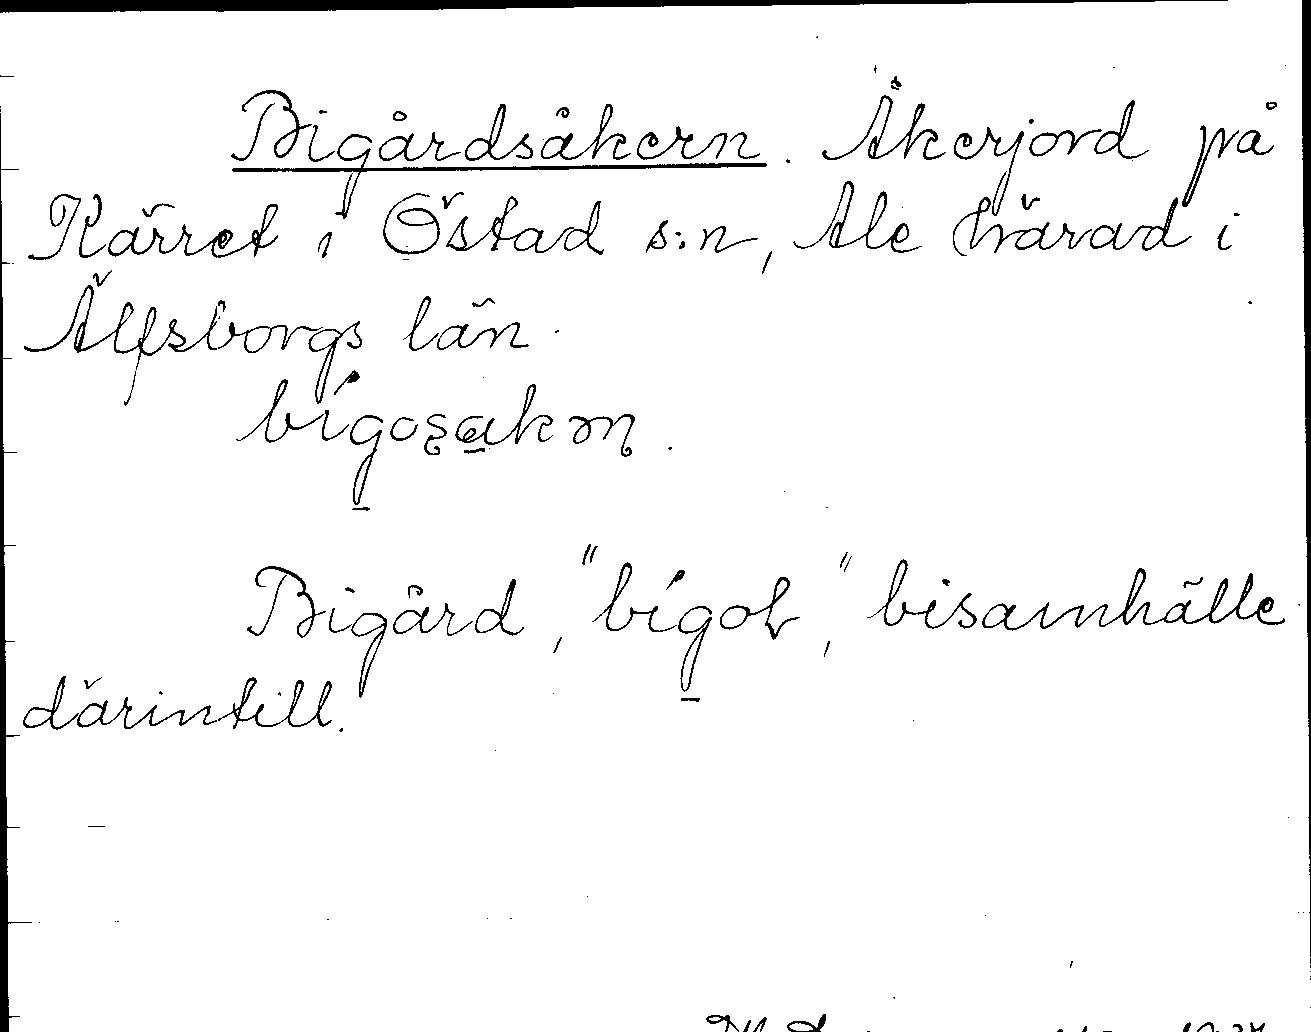 Bigårdsåkern. Åkerjord på
Kärret i Östad s:n, Ale härad i
Älfsborgs län.
bígoʂakəɳ.
Bigård, "bígoɽ," bisamhälle
därintill.